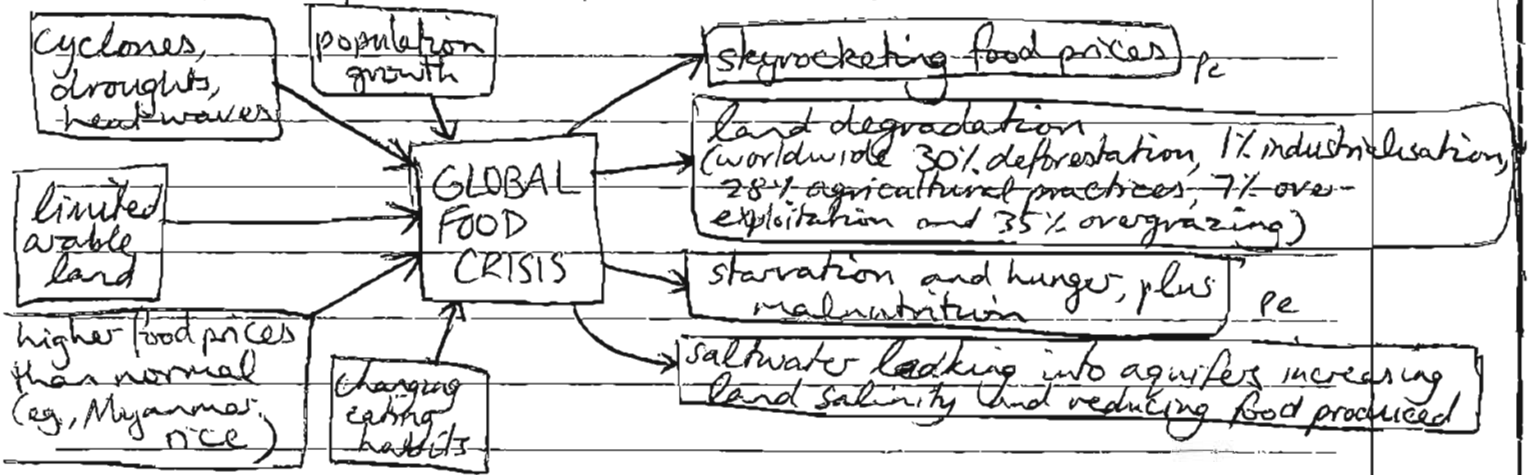 cyclones,
droughts,
heatwaves
population
growth
limited
arable
land
higher food prices
than normal
(eg, Myanmar,
rice)
changing
eating
habbits
GLOBAL
FOOD
CRISIS
skyrocketing food prices
pc
land degradation
(worldwide 30% deforestation, 1% industrialisation,
28% agricultural practices, 7% over-
exploitation and 35% overgrazing)
starvation and hunger, plus
malnutrition
pe
saltwater leaking into aquifers increasing
land salinity and reducing food produced